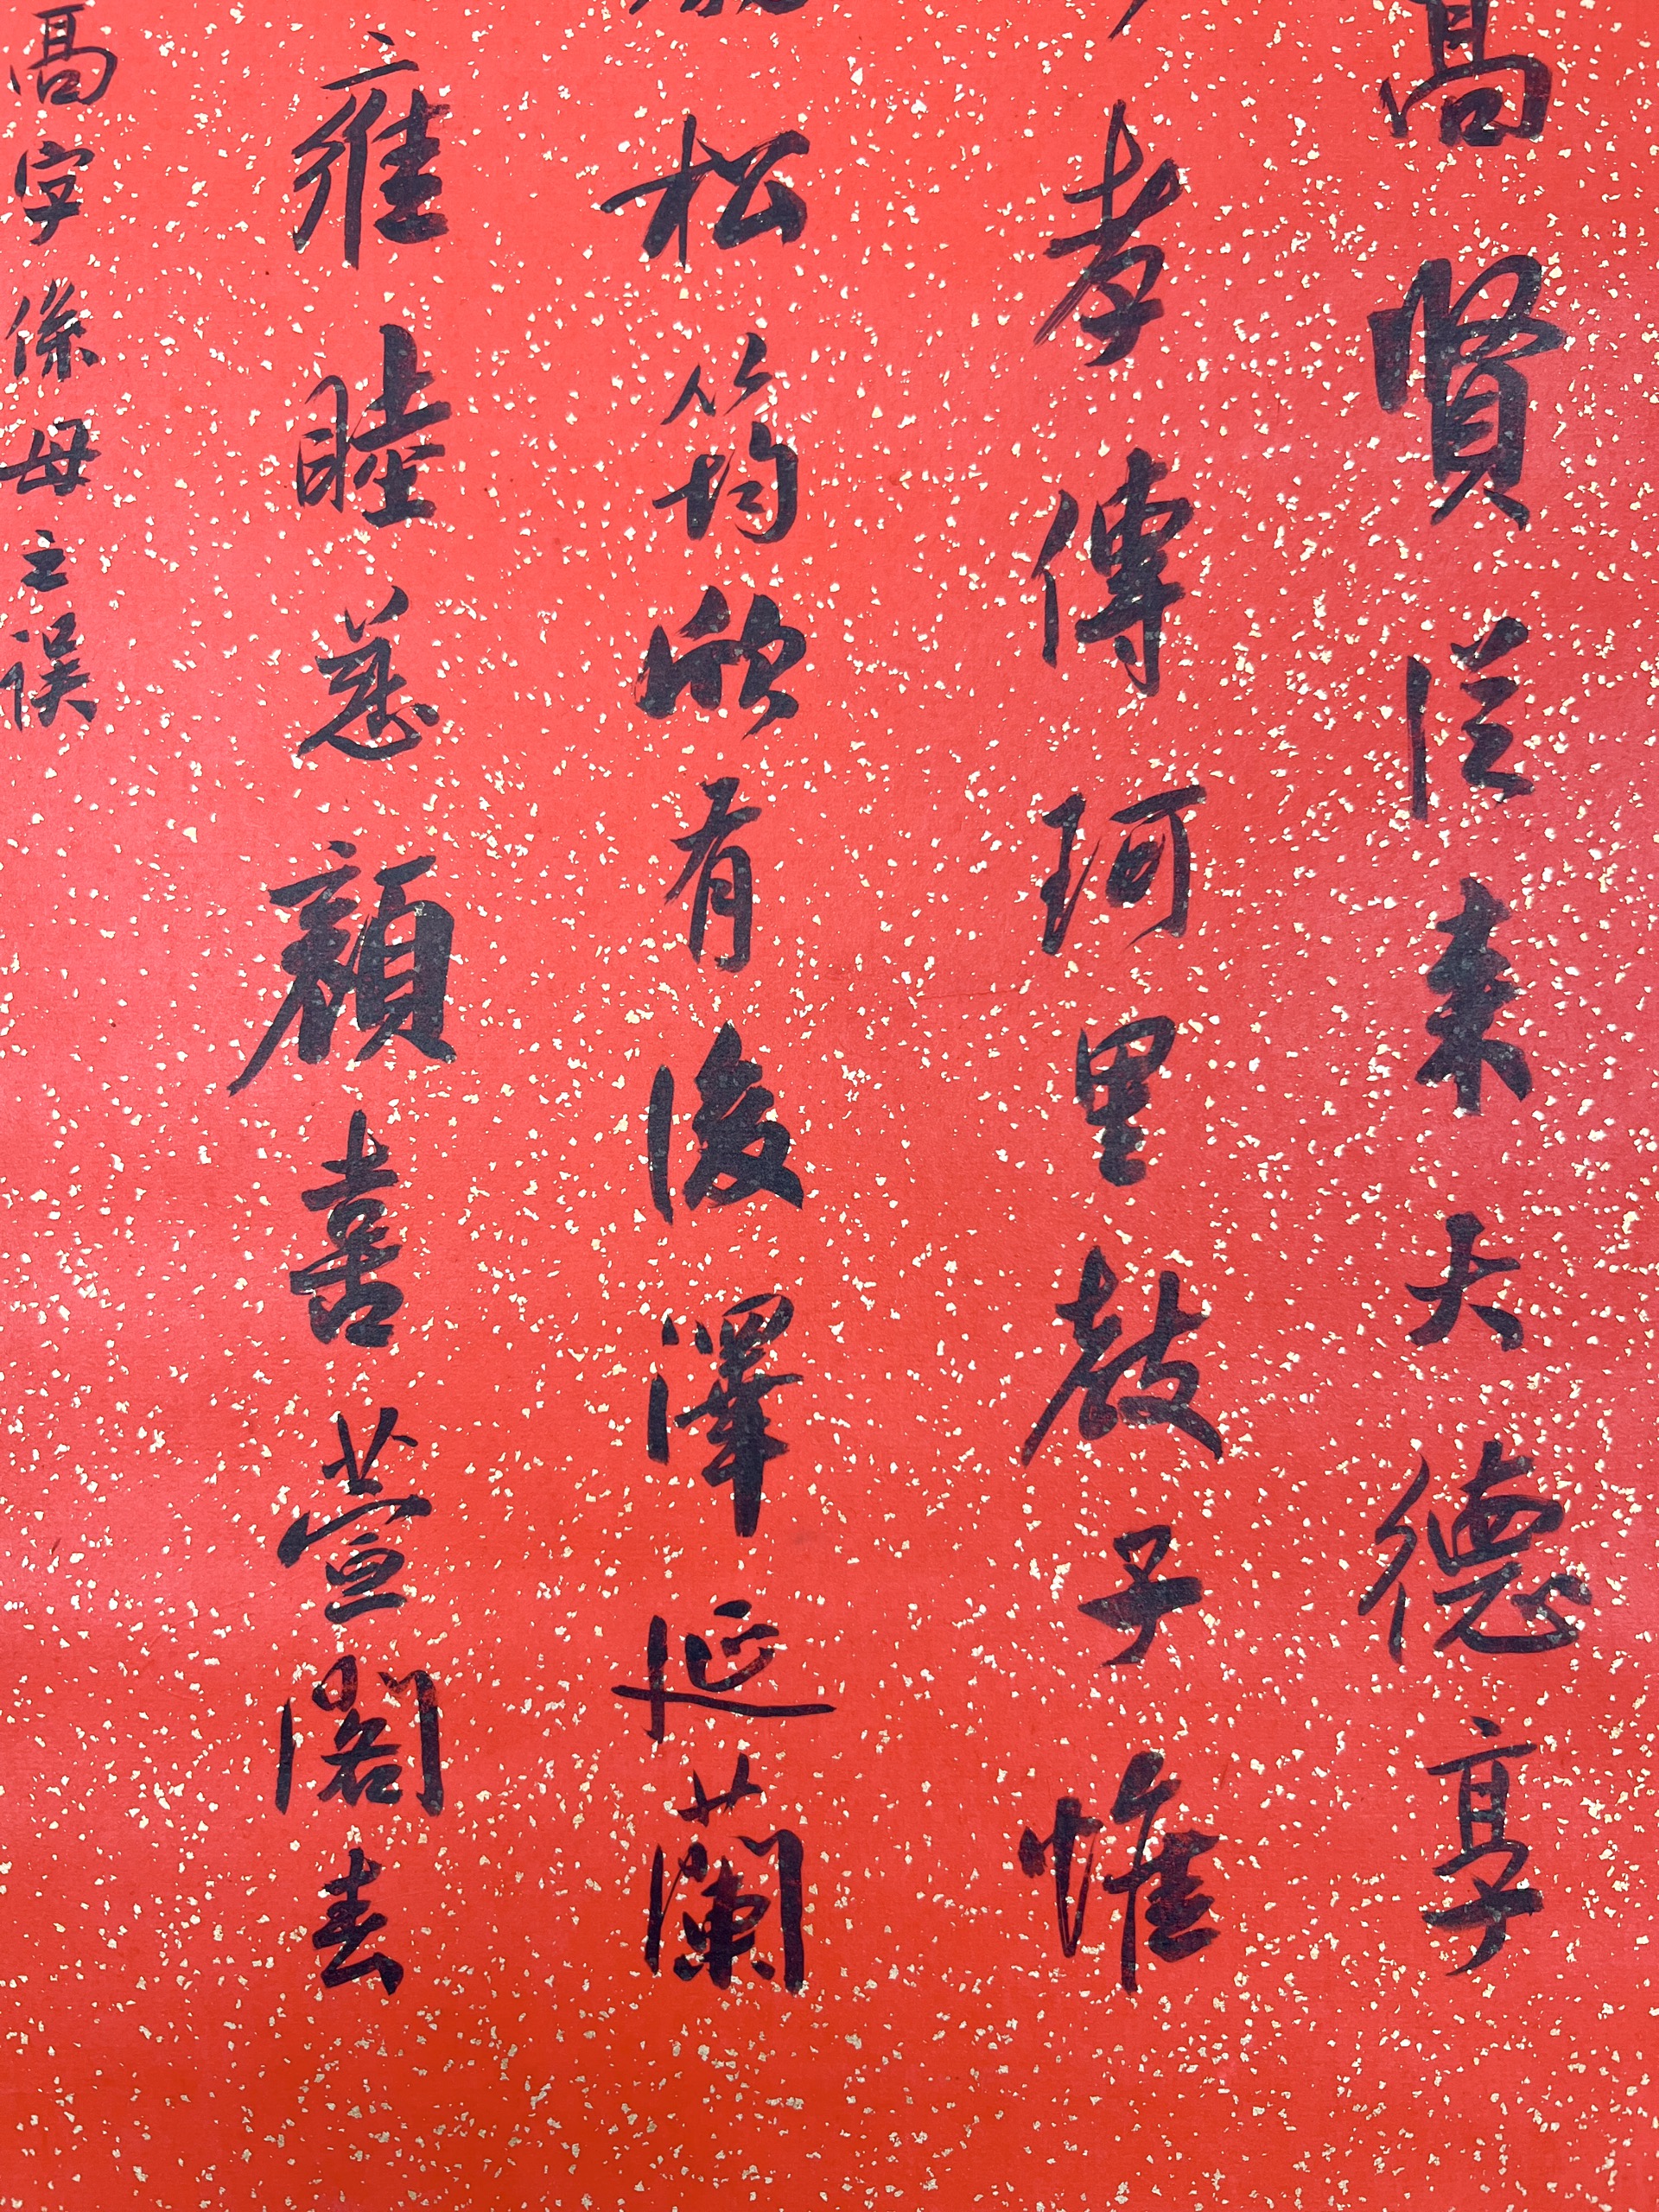 高賢從来大德享
孝傳珂里教子惟
松筠欣有後澤延蘭
雍睦慈顏喜萱閣春
高字係母之誤